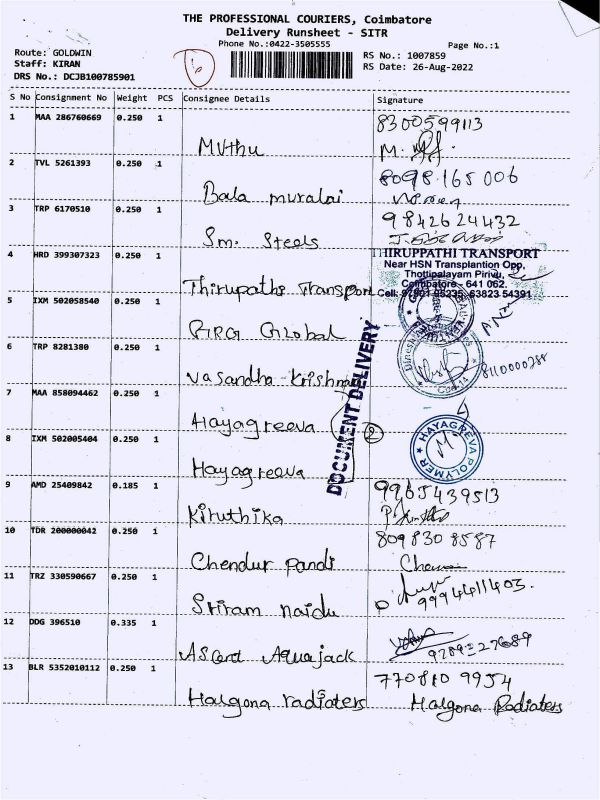 THE PROFESSIONAL COURIERS, Coimbatore
Delivery Runsheet - SITR
Phone No.:0422-3505555
Page No.:1
Route: GOLDWIN
Staff: KIRAN
DRS No.: DCJB100785901
RS No.: 1007859
RS Date: 26-Aug-2022
S No Consignment No Weight PCS Consignee Details Signature
1 MAA 286760669 0.250 1 Muthu 8300599113
M.
2 TVL 5261393 0.250 1 Bala muralai 8098165006
3 TRP 6170510 0.250 1 Sm. Steels 9842624432
4 HRD 399307323 0.250 1 Thirupathi Transport
THIRUPPATHI TRANSPORT
Near HSN Transplantion Opp,
Thottipalayam Pirivu,
Coimbatore - 641 062.
5 IXM 502058540 0.250 1 GRG Global
6 TRP 8281380 0.250 1 Vasandha Krishnan
8110000788
DOCUMENT DELIVERY
7 MAA 858094462 0.250 1 Hayagreeva
2
HAYAGREVA POLYMER
8 IXM 502005404 0.250 1 Hayagreeva
9 AMD 25409842 0.185 1 Kiruthika 9965439513
10 TDR 200000042 0.250 1 Chendur pandi 8098308587
11 TRZ 330590667 0.250 1 Sriram naidu
9994411403.
12 DDG 396510 0.335 1 Ascent Aquajack
9789227689
13 BLR 5352010112 0.250 1 Halgona radiaters 770810 9954
Halgona Radiaters